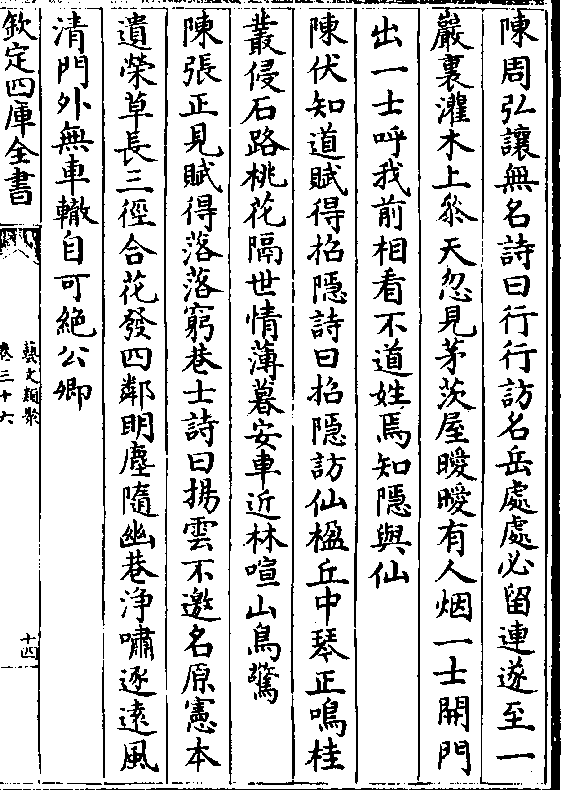 陳周弘讓無名詩曰行行訪名岳處處必留連遂至一
巖裏灌木上叅天忽見茅茨屋曖曖有人烟一士開門
出一士呼我前相看不道姓焉知隠與仙
陳伏知道賦得招隠詩曰招隠訪仙楹丘中琴正鳴桂
叢侵石路桃花隔世情薄暮安車近林喧山鳥驚
陳張正見賦得落落窮巷士詩曰揚雲不邀名原憲本
遺榮草長三徑合花發四鄰明塵隨幽巷浄嘯逐遠風
清門外無車轍自可絶公卿
欽定四庫全書
藝文類聚
卷三十六
十四